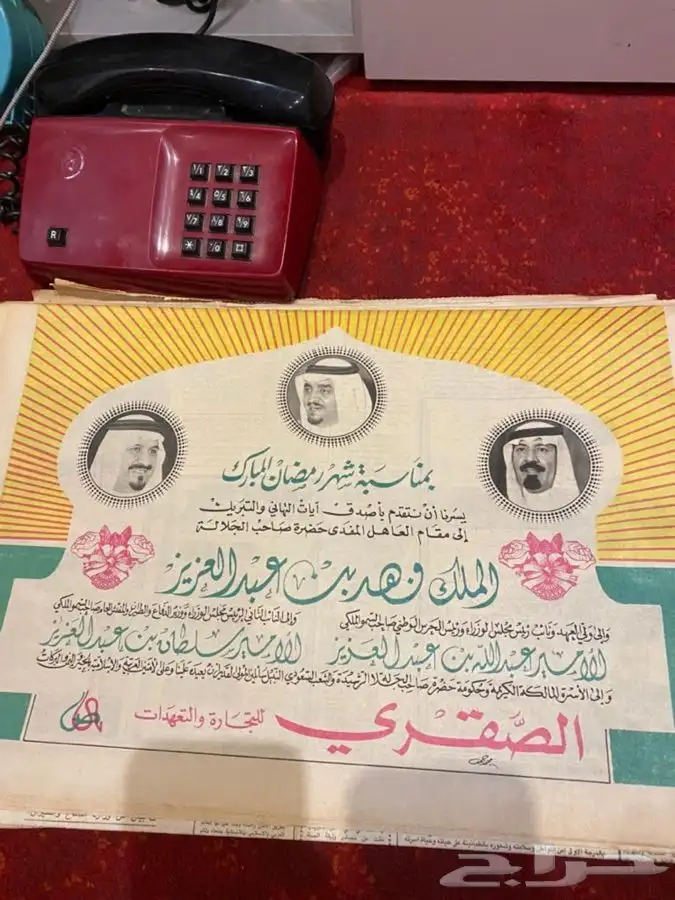 بمناسبة شهر رمضان المبارك
يسرنا أن نتقدم بأصدق آيات التهاني والتبريك
إلى مقام العاهل المفدى حضرة صاحب الجلالة
الملك فهد بن عبد العزيز
وإلى ولي العهد ونائب رئيس مجلس الوزراء ورئيس الحرس الوطني صاحب السمو الملكي
الأمير عبد الله بن عبد العزيز
وإلى النائب الثاني لرئيس مجلس الوزراء ووزير الدفاع والطيران والمفتش العام صاحب السمو الملكي
الأمير سلطان بن عبد العزيز
وإلى الأسرة المالكة الكريمة وحكومة حضرة صاحب الجلالة الرشيدة والشعب السعودي النبيل
الصقري للتجارة والتعهدات
R
1 2 3
4 5 6
7 8 9
* 0
حراج